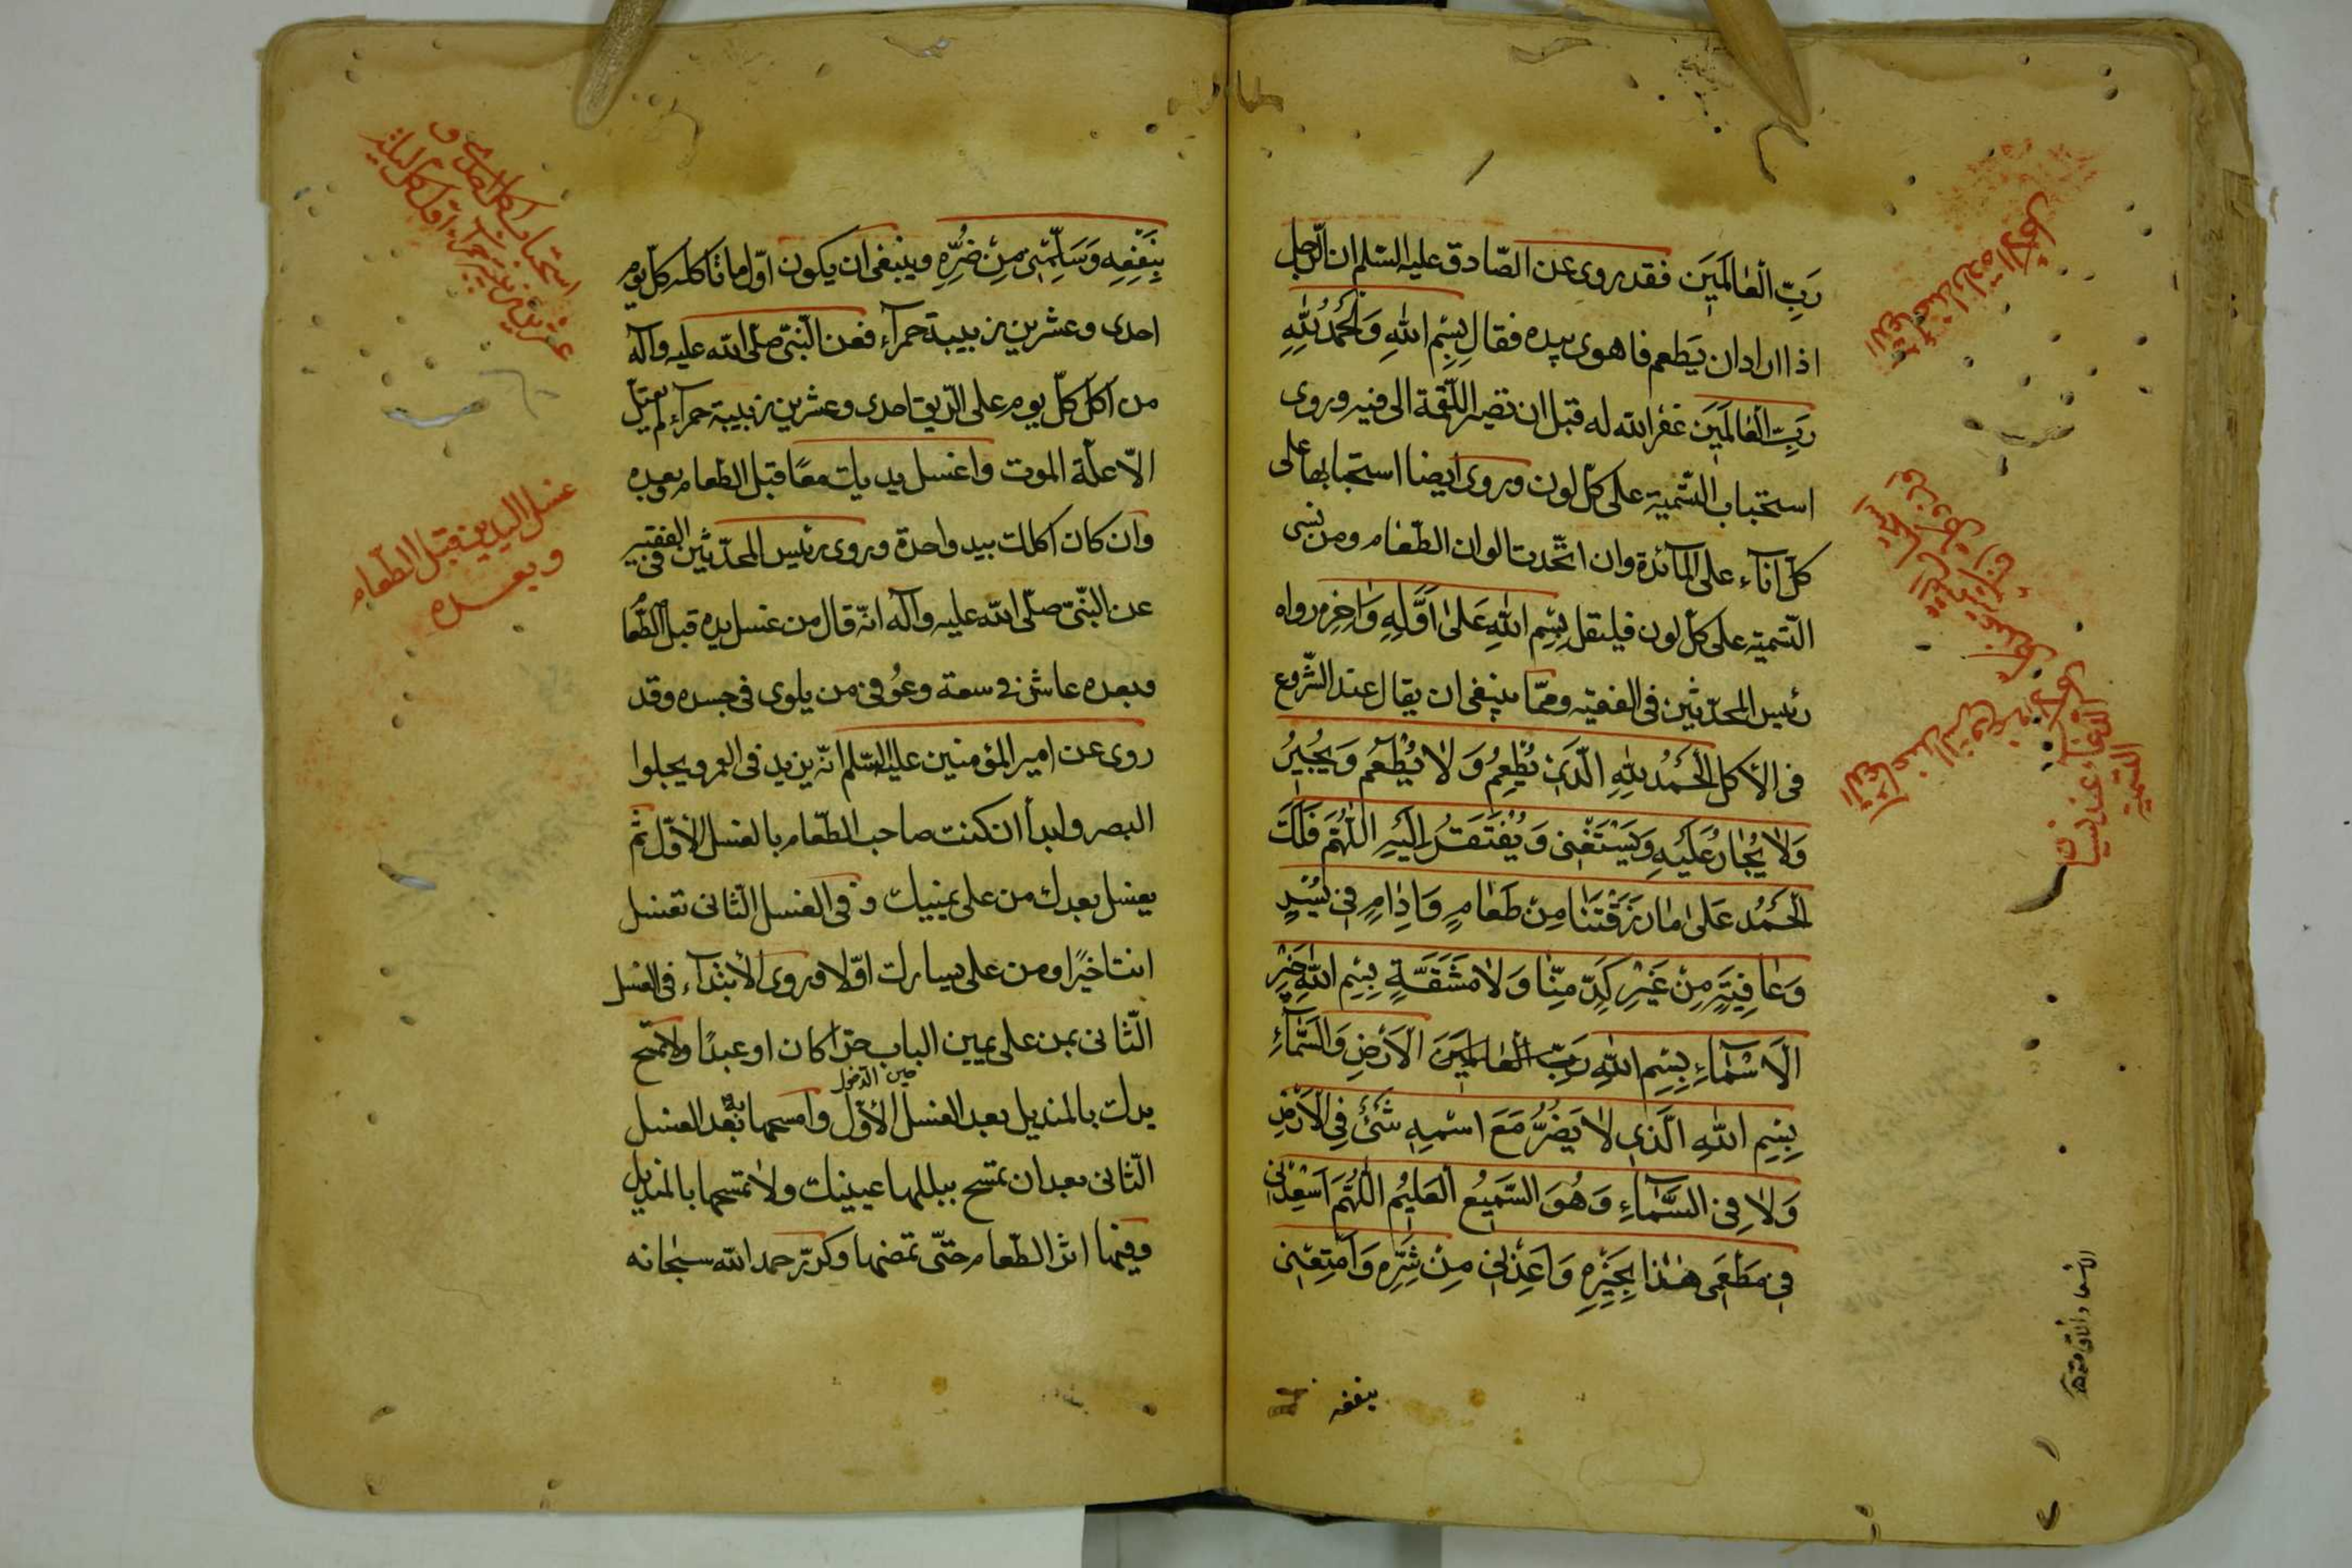 رَبِّ الْعٰالَمِينَ فقد روى عن الصّادق عليه السّلم ان الرّجل
اذا اراد ان يَطعم فاهوى بيده فقال بِسْمِ اللهِ وَالْحَمْدُ لِلّٰهِ
رَبِّ الْعٰالَمِينَ غفر الله له قبل ان تصير اللّقمة الى فيه وروى
استحباب التّسمية على كلّ لون وروى ايضا استحبابها على
كلّ اناء على المائدة وان اتّحدت الوان الطّعام ومن نسى
التّسمية على كلّ لون فليقل بِسْمِ اللهِ عَلىٰ اَوَّلِهِ وَاٰخِرِهِ رواه
رئيس المحدّثين فى الفقيه وممّا ينبغى ان يقال عند الشّروع
فى الأكل الْحَمْدُ لِلّٰهِ الَّذِى يُطْعِمُ وَلاٰ يُطْعَمُ وَيُجِيرُ
وَلاٰ يُجٰارُ عَلَيْهِ وَيَسْتَغْنِى وَيُفْتَقَرُ اِلَيْهِ اللّٰهُمَّ فَلَكَ
الْحَمْدُ عَلىٰ مٰا رَزَقْتَنٰا مِنْ طَعٰامٍ وَاِدٰامٍ فِى يُسْرٍ
وَعٰافِيَةٍ مِنْ غَيْرِ كَدٍّ مِنّٰا وَلاٰ مَشَقَّةٍ بِسْمِ اللهِ خَيْرِ
الْاَسْمٰاءِ بِسْمِ اللهِ رَبِّ الْعٰالَمِينَ الْاَرْضِ وَالسَّمٰاءِ
بِسْمِ اللهِ الَّذِى لاٰ يَضُرُّ مَعَ اسْمِهِ شَىْءٌ فِى الْاَرْضِ
وَلاٰ فِى السَّمٰاءِ وَهُوَ السَّمِيعُ الْعَلِيمُ اللّٰهُمَّ اَسْعِدْنِى
فِى مَطْعَمِى هٰذٰا بِخَيْرِهِ وَاَعِذْنِى مِنْ شَرِّهِ وَاَمْتِعْنِى
بنفعه
الدعاء عند ارادة الأكل
الدعاء عند نسيان
التسمية
بِنَفْعِهِ وَسَلِّمْنِى مِنْ ضُرِّهِ وينبغى ان يكون اوّل ما تأكله كلّ يوم
احدى وعشرين زبيبة حمراء فعن النّبىّ صلّى الله عليه وآله
من اكل كلّ يوم على الرّيق احدى وعشرين زبيبة حمراء لم يعتلّ
الاّ علّة الموت واغسل يديك معًا قبل الطّعام وبعده
وان كان اكلك بيد واحدة وروى رئيس المحدّثين فى الفقيه
عن النّبىّ صلّى الله عليه وآله انّه قال من غسل يده قبل الطّعام
وبعده عاش فى سعة وعُوفى من بلوى فى جسده وقد
روى عن امير المؤمنين عليه السّلم انّه يزيد فى العمر ويجلوا
البصر وابدأ ان كنت صاحب الطّعام بالغسل الأوّل ثمّ
يغسل بعدك من على يمينك و فى الغسل الثّانى تغسل
انت اخيرًا ومن على يسارك اوّلا وروى الأبتداء فى الغسل
الثّانى بمن على يمين الباب حرّا كان او عبدًا ولا تمسح
حين الدخول
يدك بالمنديل بعد الغسل الأوّل وامسحها به بعد الغسل
الثّانى بعد ان تمسح ببللها عينيك ولا تمسحها بالمنديل
وفيها اثر الطّعام حتّى تمصّها وكرّر حمد الله سبحانه
استحباب اكل احدى و
عشرين زبيبة حمراء اول كل يوم
غسل اليدين قبل الطّعام
وبعده